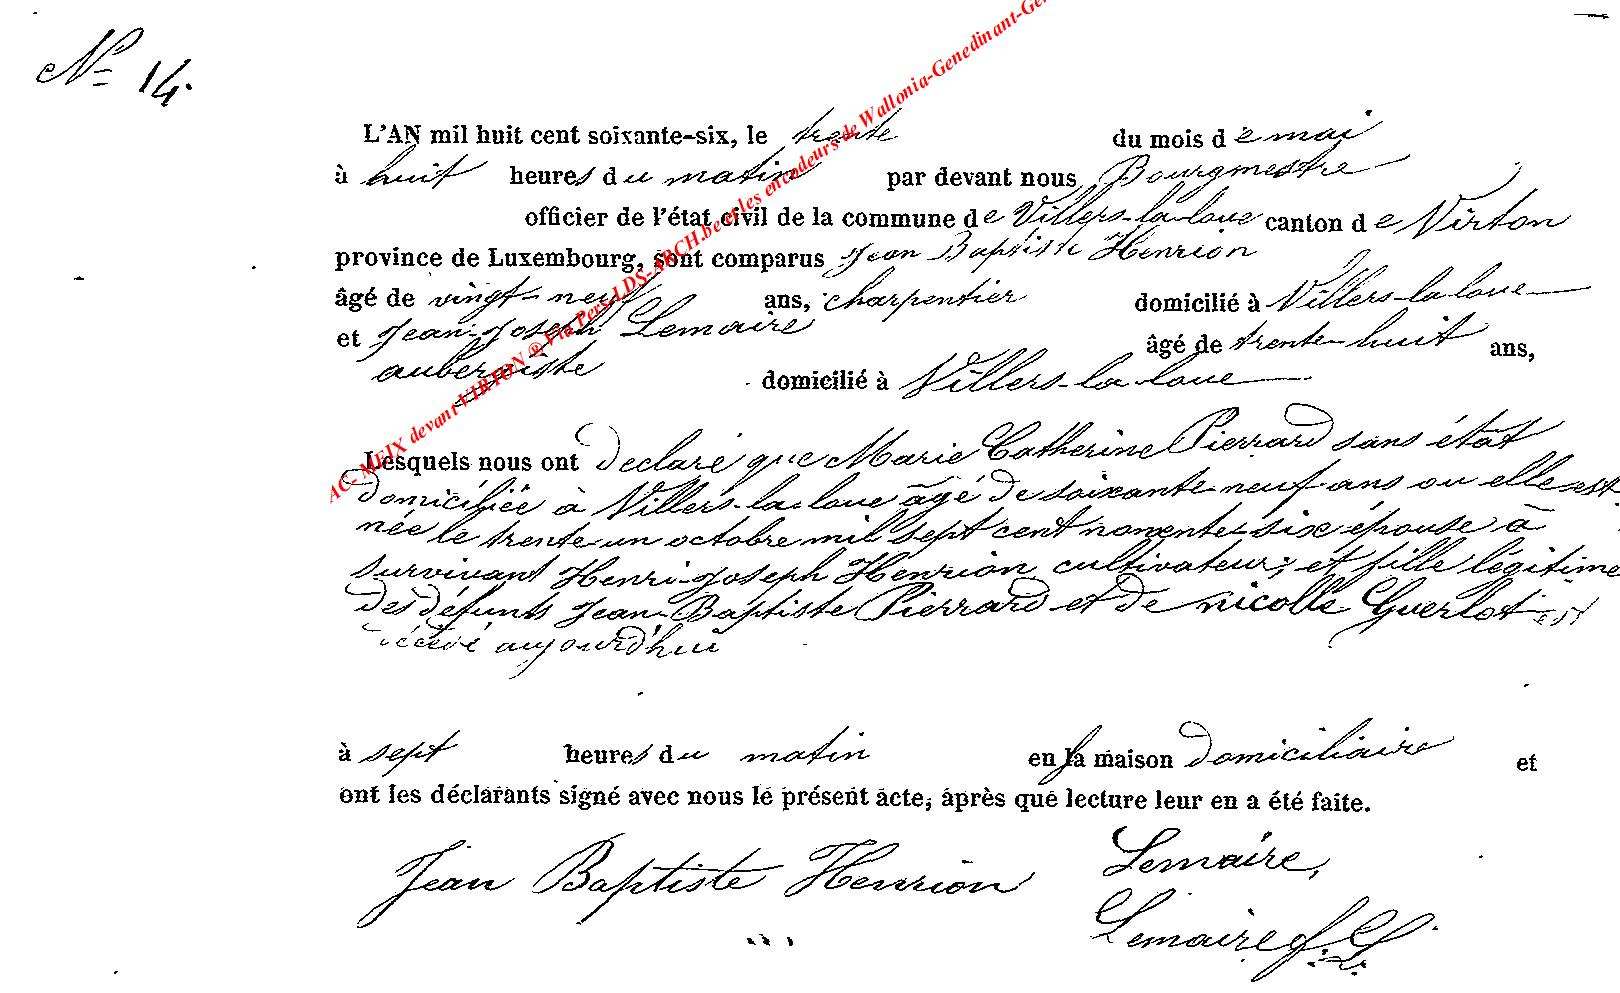 No 14.
L'AN mil huit cent soixante-six, le trente du mois de mai
à huit heures du matin par devant nous Bourgmestre
officier de l'état civil de la commune de Villers-la-loue canton de Virton
province de Luxembourg, sont comparus Jean Baptiste Henrion
âgé de vingt-neuf ans, charpentier domicilié à Villers-la-loue
et Jean-Joseph Lemaire âgé de trente-huit ans,
aubergiste domicilié à Villers-la-loue
Lesquels nous ont declaré que Marie Catherine Pierrard sans état
domiciliée à Villers-la-loue âgé de soixante-neuf ans ou elle est
née le trente un octobre mil sept cent nonente-six épouse à
survivant Henri-Joseph Henrion cultivateur; et fille légitime
des défunts Jean-Baptiste Pierrard et de Nicolle Guerlot est
décédé aujourd'hui
à sept heures du matin en sa maison domiciliaire et
ont les déclarants signé avec nous le présent acte, après que lecture leur en a été faite.
Jean Baptiste Henrion Lemaire,
Lemaire f. L.
AC- MEIX devant VIRTON ® Via Pers-LDS-ARCH.be et les encodeurs de Wallonia-Genedinant-Ge